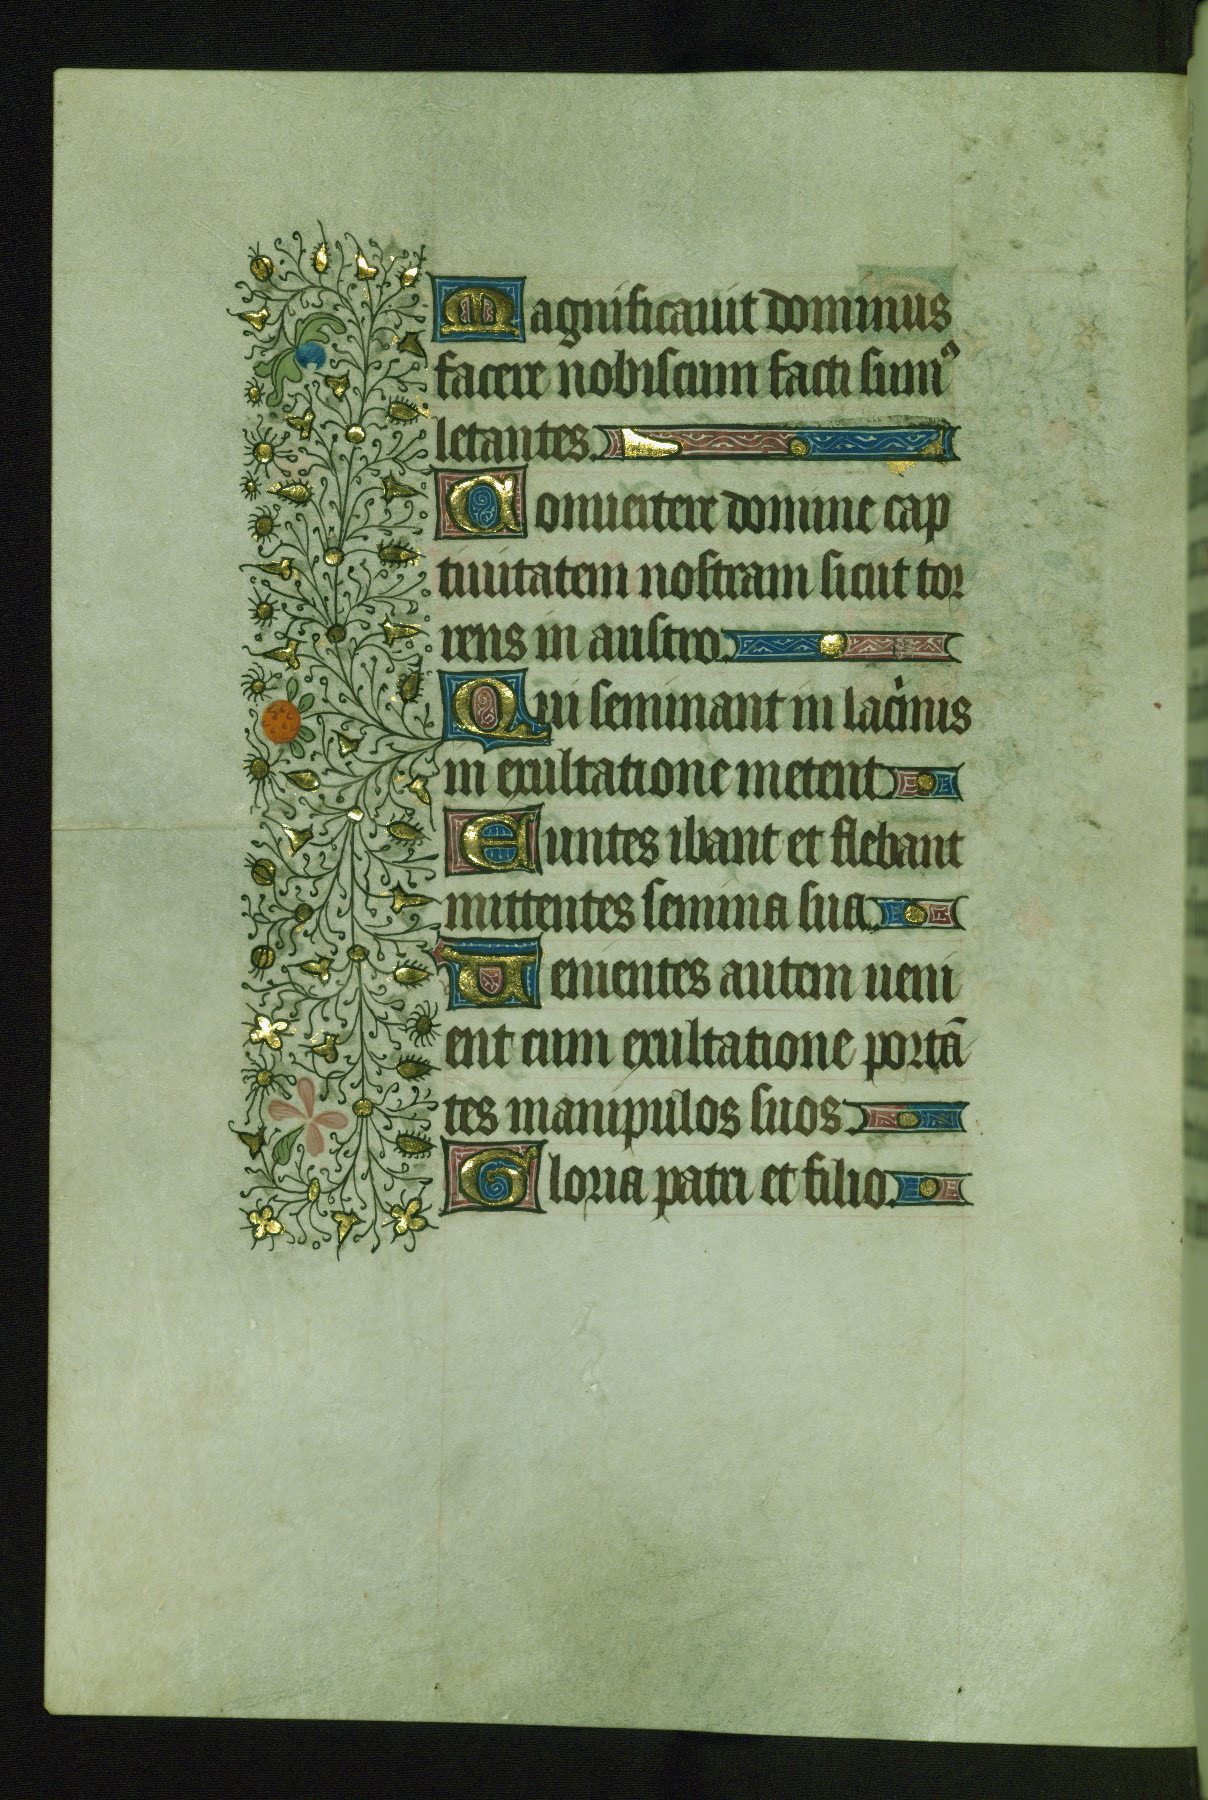 Magnificauit dominus
facere nobiscum facti sumꝰ
letantes.
Conuertere domine cap
tiuitatem nostram sicut tor
rens in austro.
Qui seminant in lacͥmis
in exultatione metent
Euntes ibant et flebant
mittentes semina sua.
Uenientes autem ueni
ent cum exultatione portā
tes manipulos suos.
Gloria patri et filio.